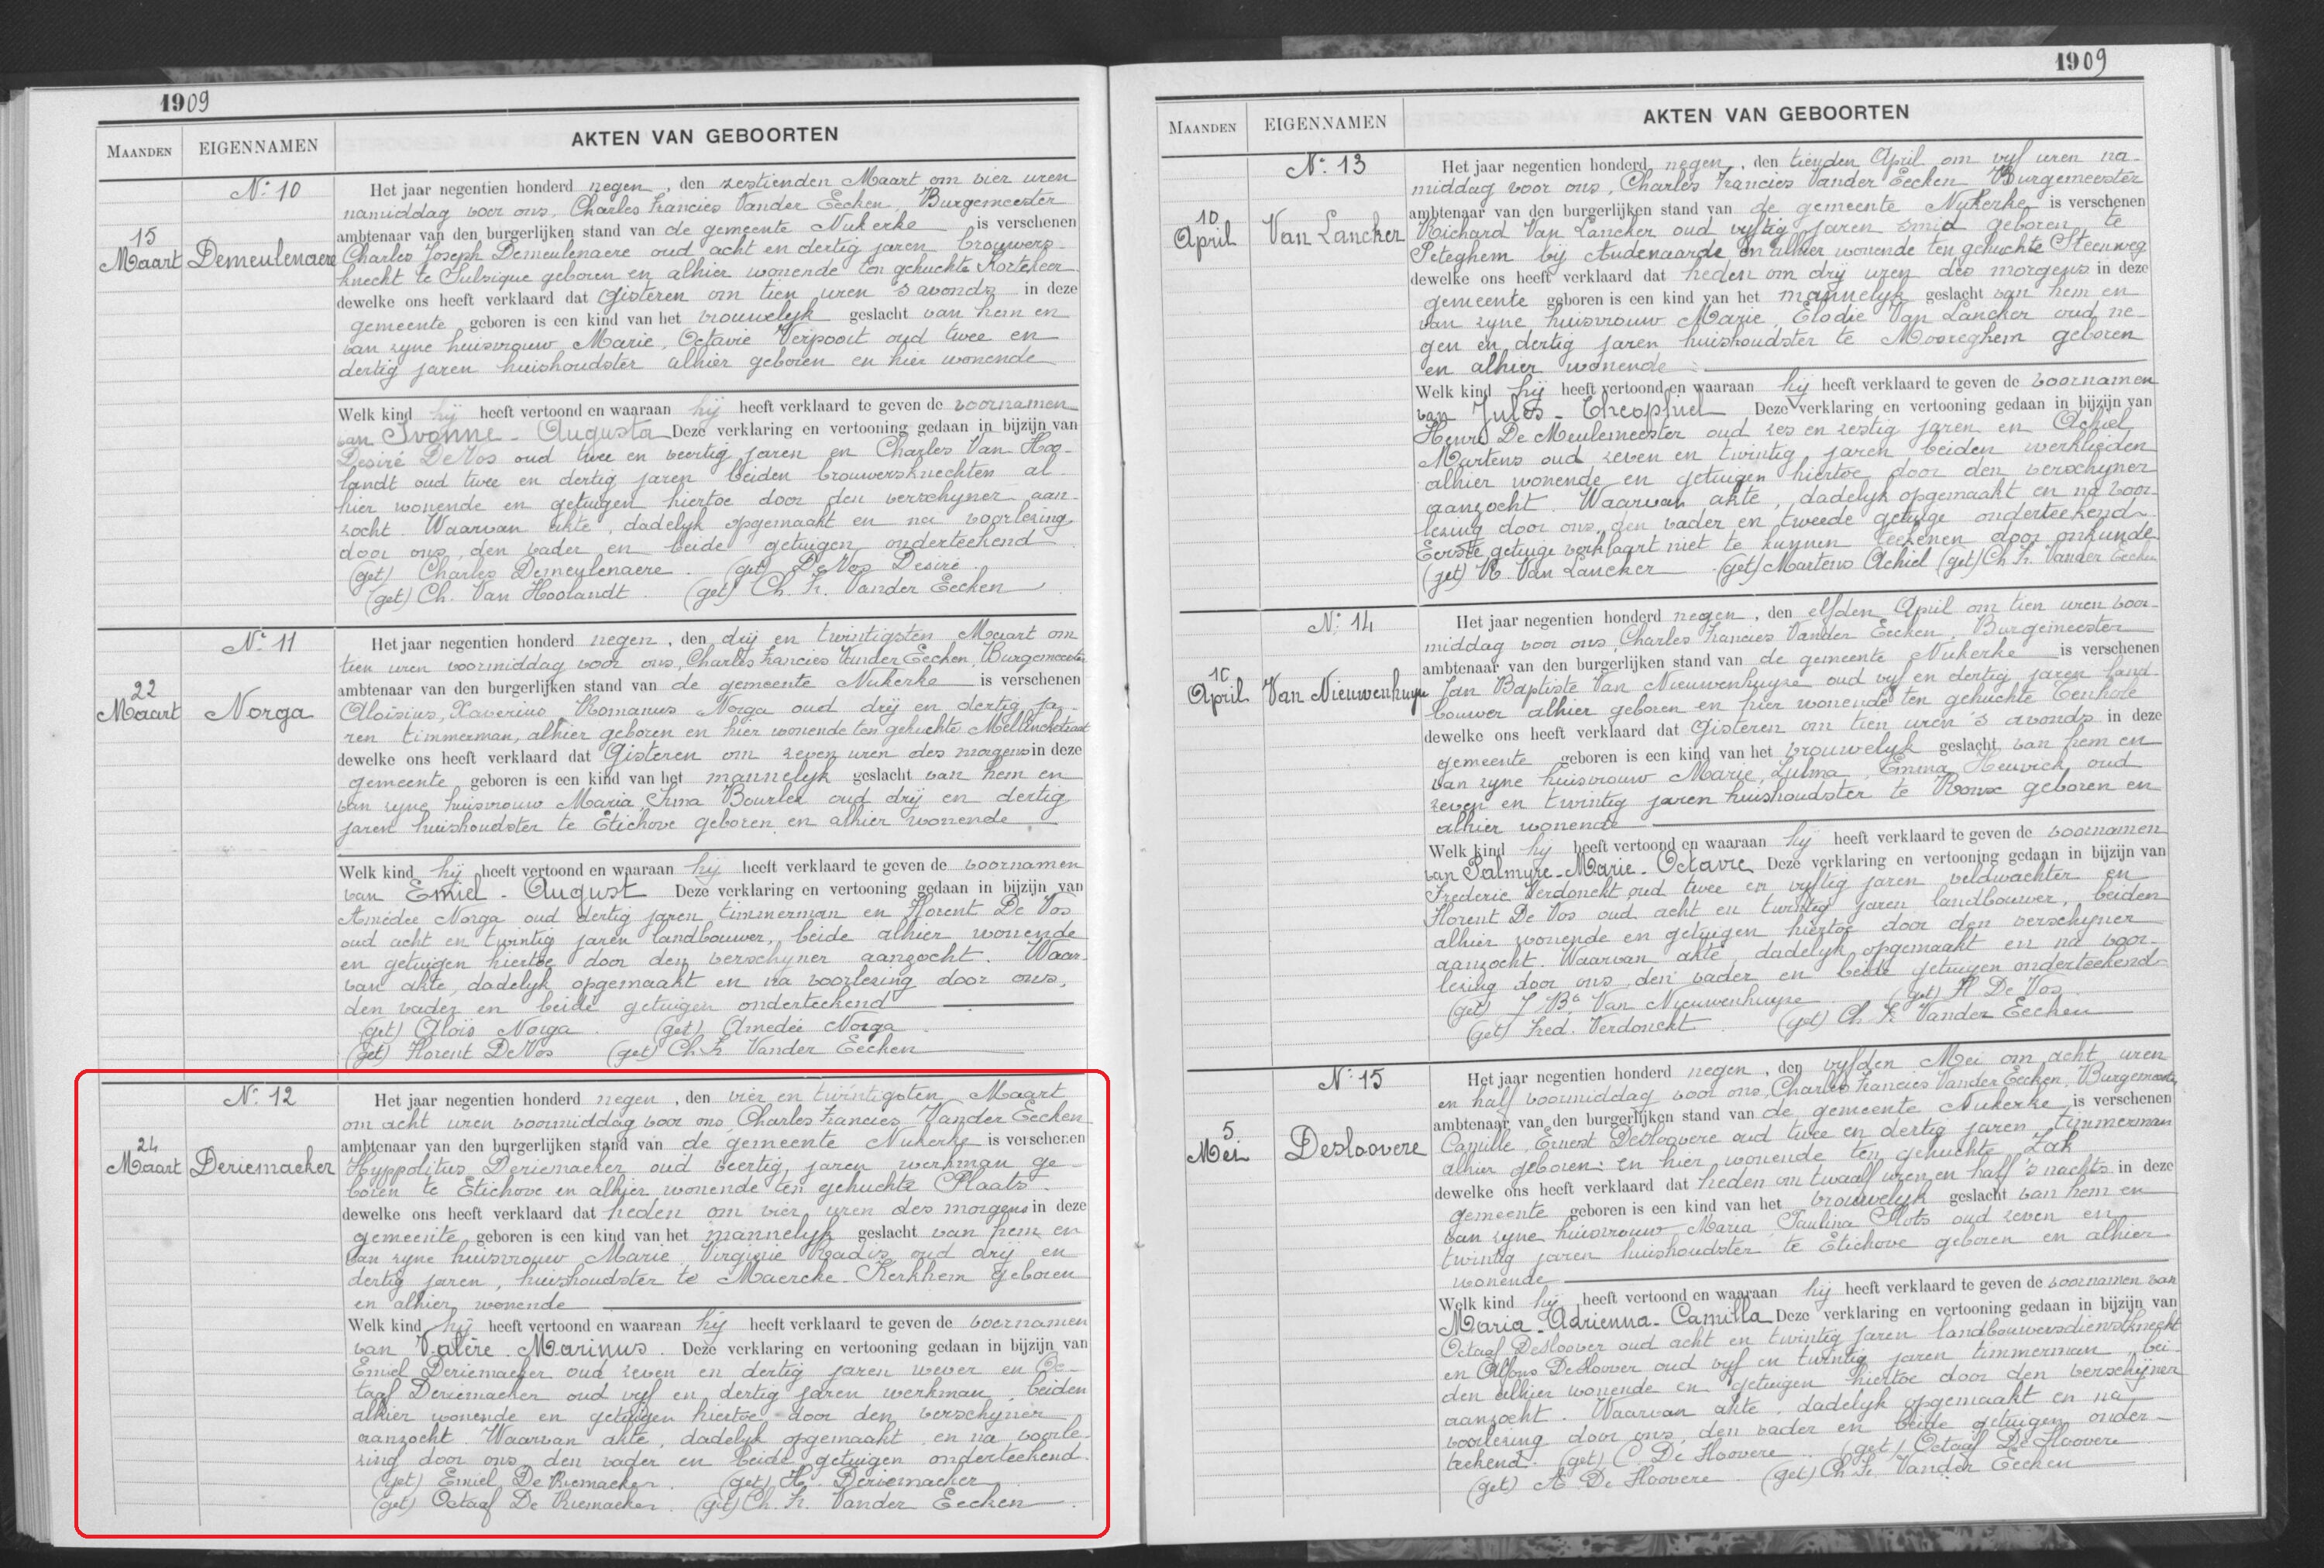 1909
MAANDEN EIGENNAMEN AKTEN VAN GEBOORTEN
N.º 10
15
Maart
Demeulenaere
Het jaar negentien honderd negen, den zestienden Maart om vier uren
namiddag voor ons, Charles Francies Vander Eecken, Burgemeester
ambtenaar van den burgerlijken stand van de gemeente Nukerke is verschenen
Charles Joseph Demeulenaere oud acht en dertig jaren brouwers-
knecht te Sulsique geboren en alhier wonende ten gehuchte Korteker
dewelke ons heeft verklaard dat Gisteren om tien uren 's avonds in deze
gemeente geboren is een kind van het vrouwelyk geslacht van hem en
van zyne huisvrouw Marie, Octavie Verpoort oud twee en
dertig jaren huishoudster alhier geboren en hier wonende
Welk kind hij heeft vertoond en waaraan hij heeft verklaard te geven de voornamen
van Ivonne - Augusta Deze verklaring en vertooning gedaan in bijzijn van
Desiré De Vos oud twee en veertig jaren en Charles Van Hoo-
landt oud twee en dertig jaren beiden brouwersknechten al-
hier wonende en getuigen hiertoe door den verschyner aan-
zocht. Waarvan akte, dadelyk opgemaakt en na voorlezing
door ons, den vader en beide getuigen onderteekend
(get) Charles Demeulenaere. (get) De Vos Desiré.
(get) Ch. Van Hoolandt. (get) Ch. Fr. Vander Eecken
N.º 11
22
Maart
Norga
Het jaar negentien honderd negen, den drij en twintigsten Maart om
tien uren voormiddag voor ons, Charles Francies Vander Eecken, Burgemeester
ambtenaar van den burgerlijken stand van de gemeente Nukerke is verschenen
Aloisius, Xaverius Romanus Norga oud drij en dertig ja-
ren timmerman, alhier geboren en hier wonende ten gehuchte
dewelke ons heeft verklaard dat Gisteren om zeven uren des morgens in deze
gemeente geboren is een kind van het mannelyk geslacht van hem en
van zyne huisvrouw Maria, Irma Bourlez oud drij en dertig
jaren huishoudster te Etichove geboren en alhier wonende
Welk kind hij heeft vertoond en waaraan hij heeft verklaard te geven de voornamen
van Emiel - August Deze verklaring en vertooning gedaan in bijzijn van
Amédée Norga oud dertig jaren timmerman en Florent De Vos
oud acht en twintig jaren landbouwer, beide alhier wonende
en getuigen hiertoe door den verschyner aanzocht. Waar-
van akte, dadelyk opgemaakt en na voorlezing door ons,
den vader en beide getuigen onderteekend
(get) Aloïs Norga. (get) Amedée Norga.
(get) Florent De Vos (get) Ch. Fr. Vander Eecken
N.º 12
24
Maart
Deriemaeker
Het jaar negentien honderd negen, den vier en twintigsten Maart
om acht uren voormiddag voor ons, Charles Francies Vander Eecken
ambtenaar van den burgerlijken stand van de gemeente Nukerke is verschenen
Hyppolitus Deriemaeker oud veertig jaren werkman ge-
boren te Etichove en alhier wonende ten gehuchte Plaats.
dewelke ons heeft verklaard dat heden om vier uren des morgens in deze
gemeente geboren is een kind van het mannelyk geslacht van hem en
van zyne huisvrouw Marie Virginie Roadts oud drij en
dertig jaren, huishoudster te Maercke-Kerkhem geboren
en alhier wonende
Welk kind hij heeft vertoond en waaraan hij heeft verklaard te geven de voornamen
van Valère - Marinus. Deze verklaring en vertooning gedaan in bijzijn van
Emiel Deriemaeker oud zeven en dertig jaren wever en Oc-
taaf Deriemaeker oud vyf en dertig jaren werkman, beiden
alhier wonende en getuigen hiertoe door den verschyner
aanzocht. Waarvan akte, dadelyk opgemaakt en na voorle-
zing door ons, den vader en beide getuigen onderteekend.
(get) Emiel De Riemaeker. (get) H. Deriemacker
(get) Octaaf De Riemaeker. (get) Ch. Fr. Vander Eecken
1909
MAANDEN EIGENNAMEN AKTEN VAN GEBOORTEN
N.º 13
10
April
Van Lancker
Het jaar negentien honderd negen, den tienden April om vyf uren na-
middag voor ons, Charles Francies Vander Eecken Burgemeester
ambtenaar van den burgerlijken stand van de gemeente Nukerke is verschenen
Richard Van Lancker oud vyftig jaren smid geboren te
Peteghem bij Audenaarde en alhier wonende ten gehuchte Steenweg
dewelke ons heeft verklaard dat heden om drij uren des morgens in deze
gemeente geboren is een kind van het mannelyk geslacht van hem en
van zyne huisvrouw Marie, Elodie Van Lancker oud ne-
gen en dertig jaren huishoudster te Mooreghem geboren
en alhier wonende
Welk kind hij heeft vertoond en waaraan hij heeft verklaard te geven de voornamen
van Jules - Theophiel Deze verklaring en vertooning gedaan in bijzijn van
Henri De Meulemeester oud zes en zestig jaren en Achiel
Martens oud zeven en twintig jaren beiden werklieden
alhier wonende en getuigen hiertoe door den verschyner
aanzocht. Waarvan akte, dadelyk opgemaakt en na voor-
lezing door ons, den vader en tweede getuige onderteekend
Eerste getuige verklaart niet te kunnen teekenen door onkunde
(get) R. Van Lancker (get) Martens Achiel (get) Ch. Fr. Vander Eecken
N.º 14
10
April
Van Nieuwenhuyse
Het jaar negentien honderd negen, den elfden April om tien uren voor-
middag voor ons, Charles Francies Vander Eecken, Burgemeester
ambtenaar van den burgerlijken stand van de gemeente Nukerke is verschenen
Jan Baptiste Van Nieuwenhuyse oud vyf en dertig jaren land-
bouwer alhier geboren en hier wonende ten gehuchte Eenhole
dewelke ons heeft verklaard dat Gisteren om tien uren 's avonds in deze
gemeente geboren is een kind van het vrouwelyk geslacht van hem en
van zyne huisvrouw Marie, Zulma, Emma Heuvick oud
zeven en twintig jaren huishoudster te Ronse geboren en
alhier wonende
Welk kind hy heeft vertoond en waaraan hij heeft verklaard te geven de voornamen
van Palmyre - Marie - Octavie Deze verklaring en vertooning gedaan in bijzijn van
Frederic Verdonckt oud twee en vyftig jaren veldwachter en
Florent De Vos oud acht en twintig jaren landbouwer, beiden
alhier wonende en getuigen hiertoe door den verschyner
aanzocht. Waarvan akte, dadelyk opgemaakt en na voor-
lezing door ons, den vader en beide getuigen onderteekend
(get) J. Bᵗᵉ Van Nieuwenhuyse. (get) Fl De Vos.
(get) Fred. Verdonckt. (get) Ch. Fr. Vander Eecken
N.º 15
5
Mei
Desloovere
Het jaar negentien honderd negen, den vyfden Mei om acht uren
en half voormiddag voor ons, Charles Francies Vander Eecken, Burgemeester
ambtenaar van den burgerlijken stand van de gemeente Nukerke is verschenen
Camille, Ernest Desloovere oud twee en dertig jaren timmerman
alhier geboren en hier wonende ten gehuchte Zak
dewelke ons heeft verklaard dat heden om twaalf uren en half 's nachts in deze
gemeente geboren is een kind van het vrouwelyk geslacht van hem en
van zyne huisvrouw Maria Paulina Plots oud zeven en
twintig jaren huishoudster te Etichove geboren en alhier
wonende
Welk kind hij heeft vertoond en waaraan hij heeft verklaard te geven de voornamen van
Maria - Adrienna - Camilla Deze verklaring en vertooning gedaan in bijzijn van
Octaaf Desloover oud acht en twintig jaren landbouwersdienstknecht
en Alfons Desloover oud vyf en twintig jaren timmerman, bei-
den alhier wonende en getuigen hiertoe door den verschijner
aanzocht. Waarvan akte, dadelyk opgemaakt en na
voorlezing door ons, den vader en beide getuigen onder-
teekend. (get) C. De Sloovere. (get) Octaaf De Sloovere
(get) A. De Sloovere. (get) Ch. Fr. Vander Eecken